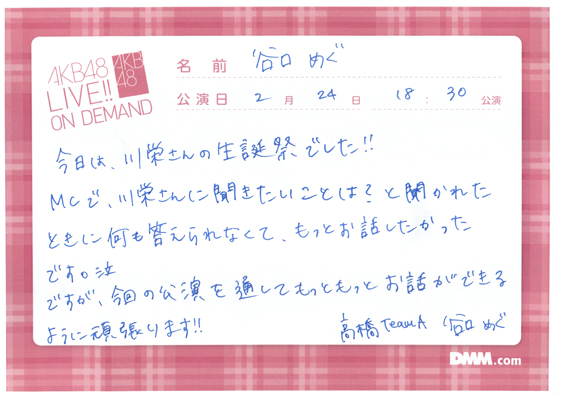 AKB48
LIVE!!
ON DEMAND
AKB
48
名前 谷口 めぐ
公演日 2月 24日 18:30公演
今日は、川栄さんの生誕祭でした!!
MCで、川栄さんに聞きたいことは？と聞かれた
ときに何も答えられなくて、もっとお話したかった
です。泣
ですが、今回の公演を通してもっともっとお話ができる
ように頑張ります!!
高橋TeamA 谷口 めぐ
DMM.com